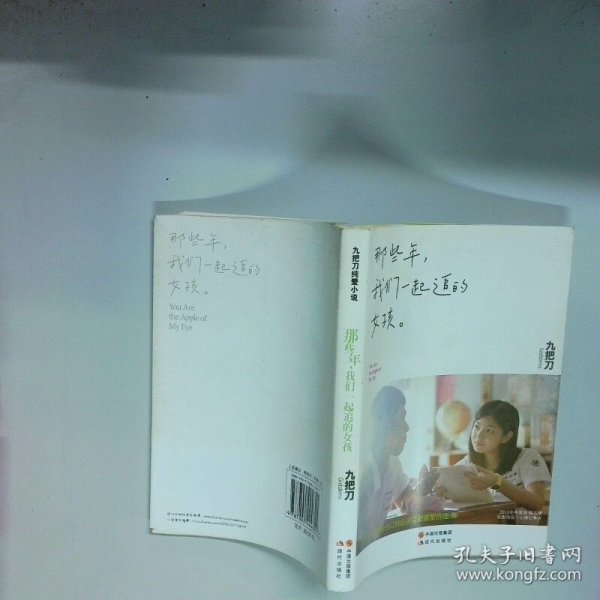 那些年，
我们一起追的
女孩。
You Are
the Apple of
My Eye
九把刀纯爱小说
那些年，我们一起追的女孩
九把刀
Giddens
中国出版集团
现代出版社
那些年，
我们一起追的
女孩。
九把刀
Giddens
中国出版集团
现代出版社
孔夫子旧书网
www.kongfz.com